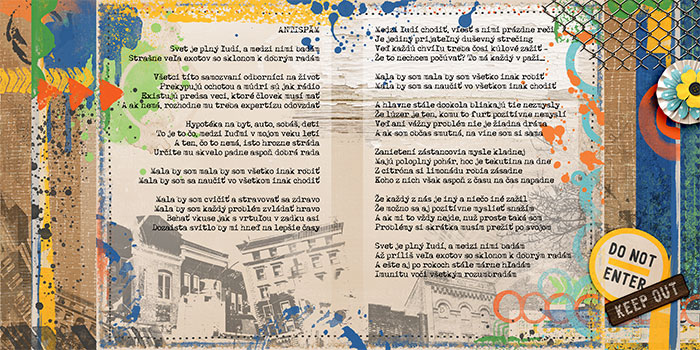 ANTISPAM
Svet je plný ľudí, a medzi nimi badám
Strašne veľa exotov so sklonom k dobrým radám
Všetci títo samozvaní odborníci na život
Prekypujú ochotou a múdri sú jak rádio
Existujú predsa veci, ktoré človek musí mať
A ak nemá, rozhodne mu treba expertízu odovzdať
Hypotéka na byt, auto, sobáš, deti
To je to čo, medzi ľuďmi v mojom veku letí
A ten, čo to nemá, isto hrozne stráda
Určite mu skvelo padne aspoň dobrá rada
Mala by som mala by som všetko inak robiť
Mala by som sa naučiť vo všetkom inak chodiť
Mala by som cvičiť a stravovať sa zdravo
Mala by som každý problém zvládať hravo
Behať vkuse jak s vrtuľou v zadku asi
Dozaista svitlo by mi hneď na lepšie časy
Medzi ľudí chodiť, viesť s nimi prázdne reči
Je jediný prijateľný duševný strečing
Veď každú chvíľu treba čosi kúlové zažiť
Že to nechcem počúvať? To má každý v paži...
Mala by som mala by som všetko inak robiť
Mala by som sa naučiť vo všetkom inak chodiť
A hlavne stále dookola bliakajú tie nezmysly
Že lúzer je ten, komu to furt pozitívne nemyslí
Veď ani vážny problém nie je žiadna dráma
A ak som občas smutná, na vine som si sama
Zanietení zástancovia mysle kladnej
Majú poloplný pohár, hoc je tekutina na dne
Z citróna si limonádu robia zásadne
Koho z nich však aspoň z času na čas napadne
Že každý z nás je iný a niečo iné zažil
Že možno sa aj pozitívne myslieť snažím
A ak mi to vždy nejde, nuž proste taká som
Problémy si skrátka musím prežiť po svojom
Svet je plný ľudí, a medzi nimi badám
Až príliš veľa exotov so sklonom k dobrým radám
A ešte aj po rokoch stále márne hľadám
Imunitu voči všetkým rozumbradám
DO NOT
ENTER
KEEP OUT